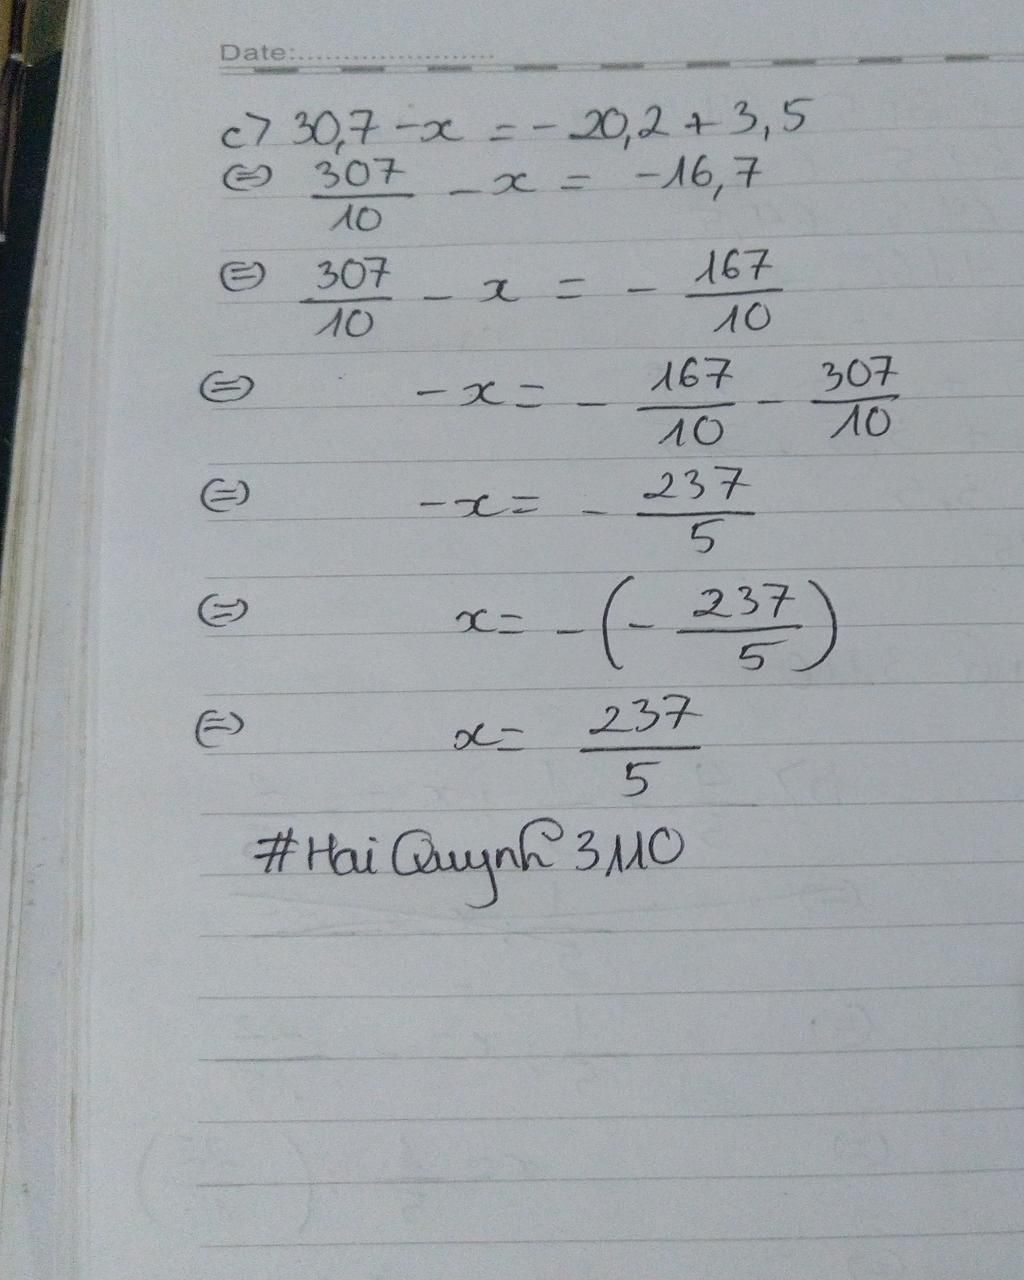 Date:......................
c) 30,7 - x = - 20,2 + 3,5
⇔ 307/10 - x = -16,7
⇔ 307/10 - x = - 167/10
⇔ -x = - 167/10 - 307/10
⇔ -x = - 237/5
⇔ x = - (- 237/5)
⇔ x = 237/5
#Hai Quynh 3110